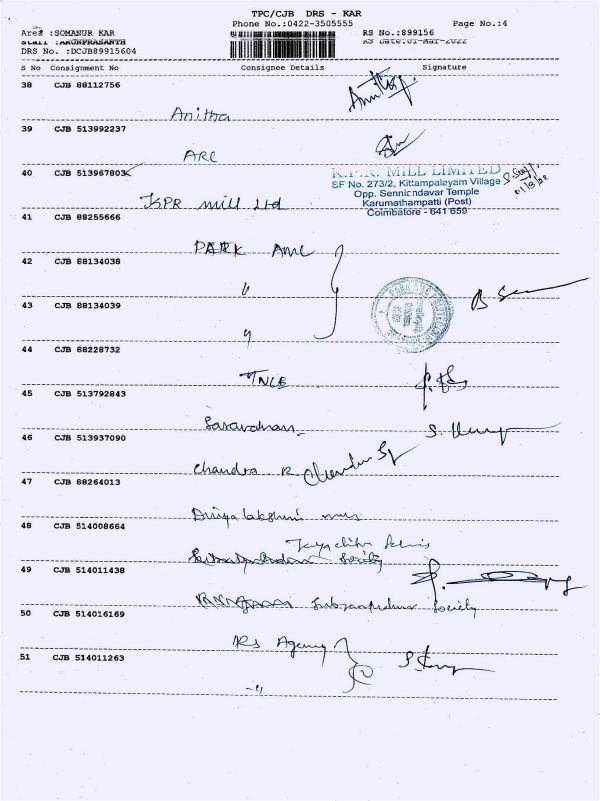 TPC/CJB DRS - KAR
Phone No.:0422-3505555 Page No.:4
Area :SOMANUR KAR RS No.:899156
Staff :ARUNPRASANTH RS Date:01-Mar-2022
DRS No. :DCJB89915604
S No Consignment No Consignee Details Signature
38 CJB 88112756
Anitha
39 CJB 513992237
ARC
40 CJB 513967803
K.P.R. MILL LIMITED
SF No. 273/2, Kittampaleyam Village
Opp. Sennicndavar Temple
Karumathampatti (Post)
Coimbatore - 641 659
KPR mill Ltd
41 CJB 88255666
PARK AML
42 CJB 88134038
"
43 CJB 88134039
"
44 CJB 88228732
TNCE
45 CJB 513792843
Saravanan
46 CJB 513937090
Chandra R
47 CJB 88264013
Divya lakshmi mills
48 CJB 514008664
Society
49 CJB 514011438
Society
50 CJB 514016169
Agency
51 CJB 514011263
"